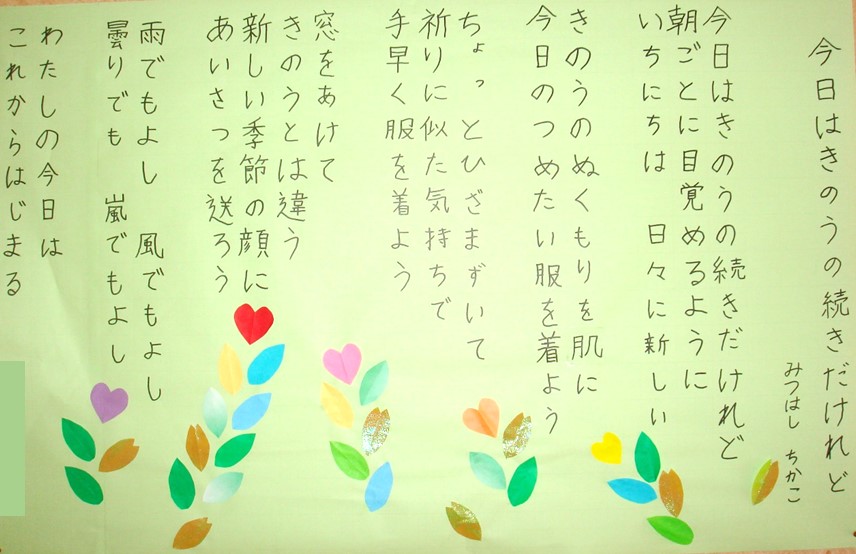 今日はきのうの続きだけれど
みつはし ちかこ
今日はきのうの続きだけれど
朝ごとに目覚めるように
いちにちは 日々に新しい
きのうのぬくもりを肌に
今日のつめたい服を着よう
ちょっとひざまずいて
祈りに似た気持ちで
手早く服を着よう
窓をあけて
きのうとは違う
新しい季節の顔に
あいさつを送ろう
雨でもよし 風でもよし
曇りでも 嵐でもよし
わたしの今日は
これからはじまる